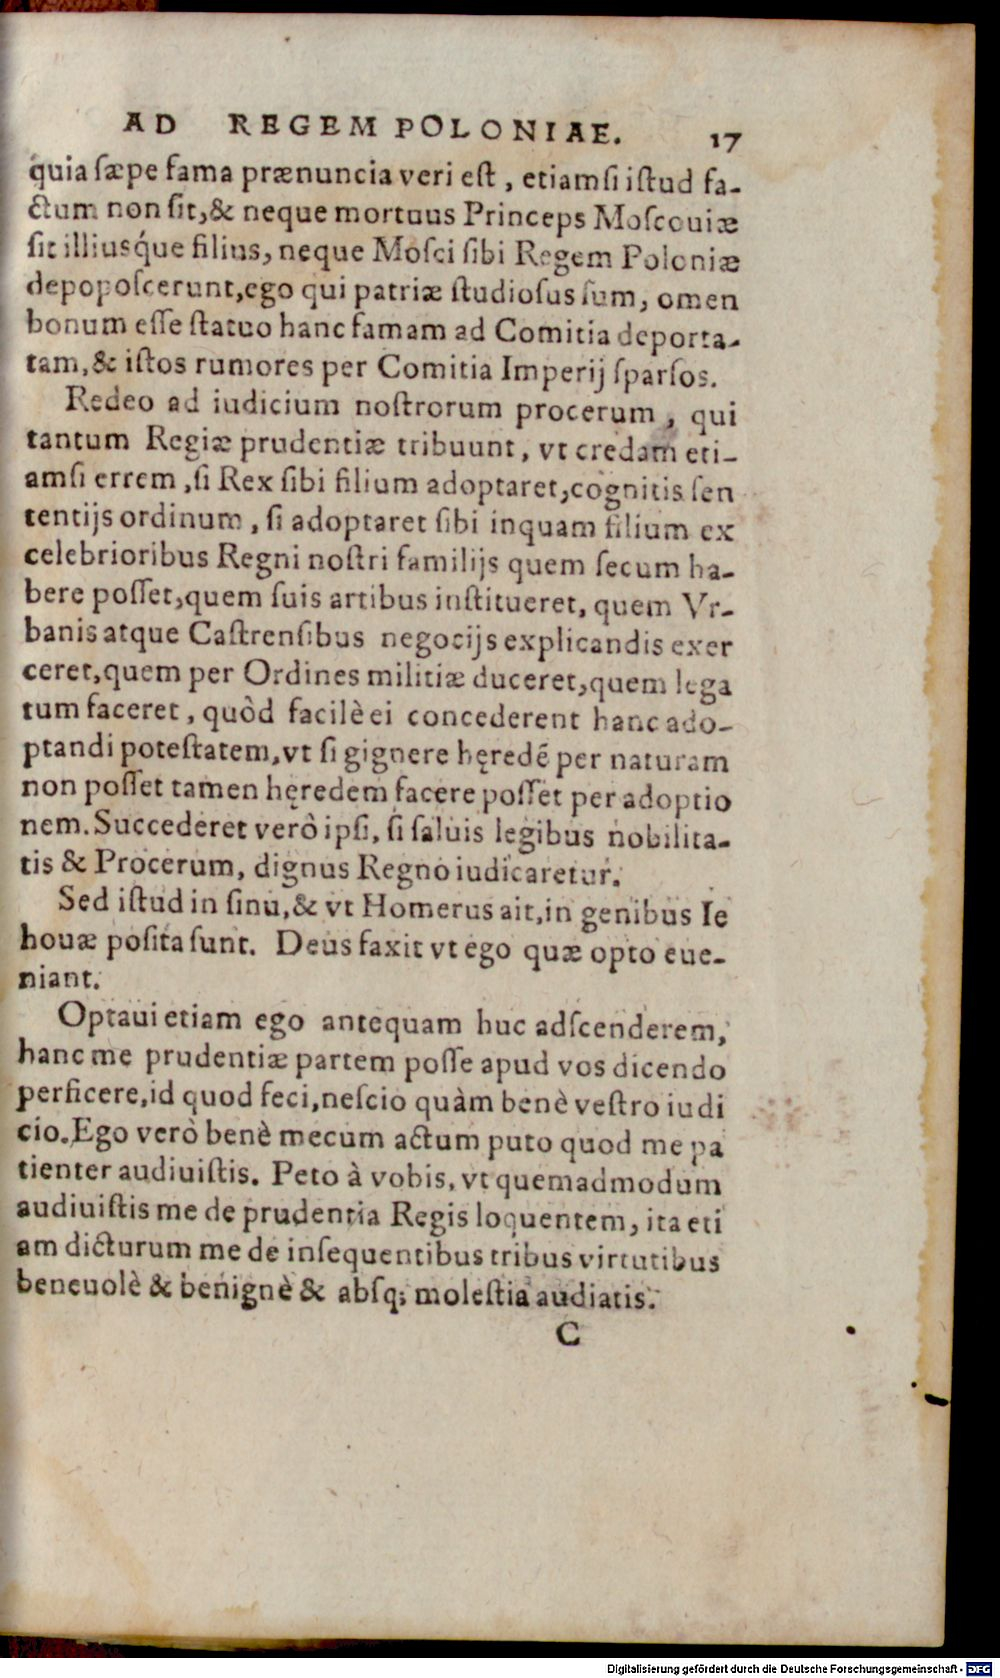 AD REGEM POLONIAE. 17
quia sæpe fama prænuncia veri est, etiamsi istud fa-
ctum non sit, & neque mortuus Princeps Moscouiæ
sit illiusq́ue filius, neque Mosci sibi Regem Poloniæ
depoposcerunt, ego qui patriæ studiosus sum, omen
bonum esse statuo hanc famam ad Comitia deporta-
tam, & istos rumores per Comitia Imperij sparsos.
Redeo ad iudicium nostrorum procerum, qui
tantum Regiæ prudentiæ tribuunt, vt credam eti-
amsi errem, si Rex sibi filium adoptaret, cognitis sen
tentijs ordinum, si adoptaret sibi inquam filium ex
celebrioribus Regni nostri familijs quem secum ha-
bere posset, quem suis artibus institueret, quem Vr-
banis atque Castrensibus negocijs explicandis exer
ceret, quem per Ordines militiæ duceret, quem lega
tum faceret, quòd facilè ei concederent hanc ado-
ptandi potestatem, vt si gignere hęredẽ per naturam
non posset tamen hęredem facere posset per adoptio
nem. Succederet verò ipsi, si saluis legibus nobilita-
tis & Procerum, dignus Regno iudicaretur.
Sed istud in sinu, & vt Homerus ait, in genibus Ie
houæ posita sunt. Deus faxit vt ego quæ opto eue-
niant.
Optaui etiam ego antequam huc adscenderem,
hanc me prudentiæ partem posse apud vos dicendo
perficere, id quod feci, nescio quàm benè vestro iudi
cio. Ego verò benè mecum actum puto quod me pa
tienter audiuistis. Peto à vobis, vt quemadmodum
audiuistis me de prudentia Regis loquentem, ita eti
am dicturum me de insequentibus tribus virtutibus
beneuolè & benignè & absq; molestia audiatis.
C
Digitalisierung gefördert durch die Deutsche Forschungsgemeinschaft - DFG